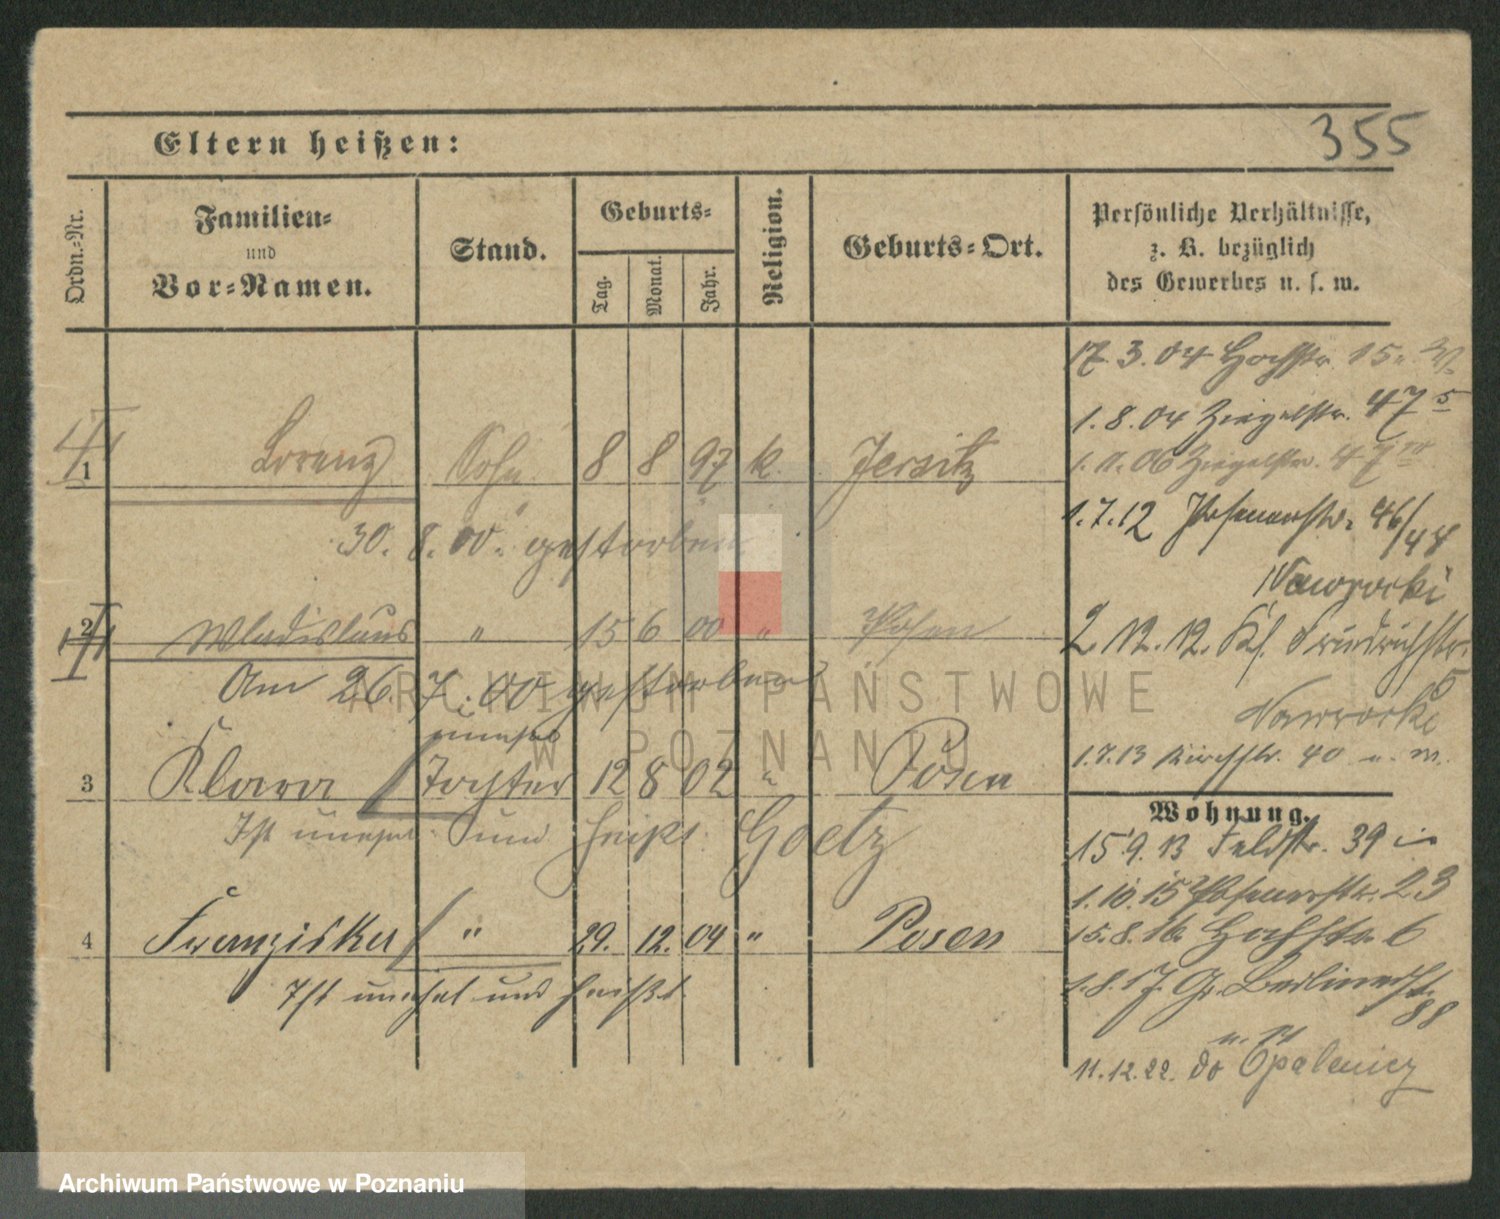 355
Eltern heißen:
Ordn.-Nr.
Familien-
und
Vor-Namen.
Stand.
Geburts-
Tag.
Monat.
Jahr.
Religion.
Geburts-Ort.
Persönliche Verhältnisse,
z. B. bezüglich
des Gewerbes u. s. w.
17.3.04 Hochstr. 15
1.8.04 Ziegelstr. 47
1. 11. 06 Ziegelstr. 47
1.7.12 Posenerstr. 46/48
Nawrocki
2.12.12. Friedrichstr. 5
Nawrocki
1.7.13 Kirchstr. 40
1 Lorenz Sohn 8 8 97 k. Jersitz
30. 8. 00. gestorben
2 Wladislaus " 15 6 00 " Posen
Am 26. 7. 00 gestorben
unehel
3 Klara Tochter 12 8 02 " Posen
Ist unehel und heißt Goetz
4 Franziska " 29. 12. 04 " Posen
Ist unehel und heißt
Wohnung.
15.9.13 Feldstr. 39
1.10.15 Posenerstr. 23
15.8.16. Hochstr. 6
1.8.17. Gr. Berlinerstr. 88
11.12.22. do Opalenicy
ARCHIWUM PAŃSTWOWE
W POZNANIU
Archiwum Państwowe w Poznaniu